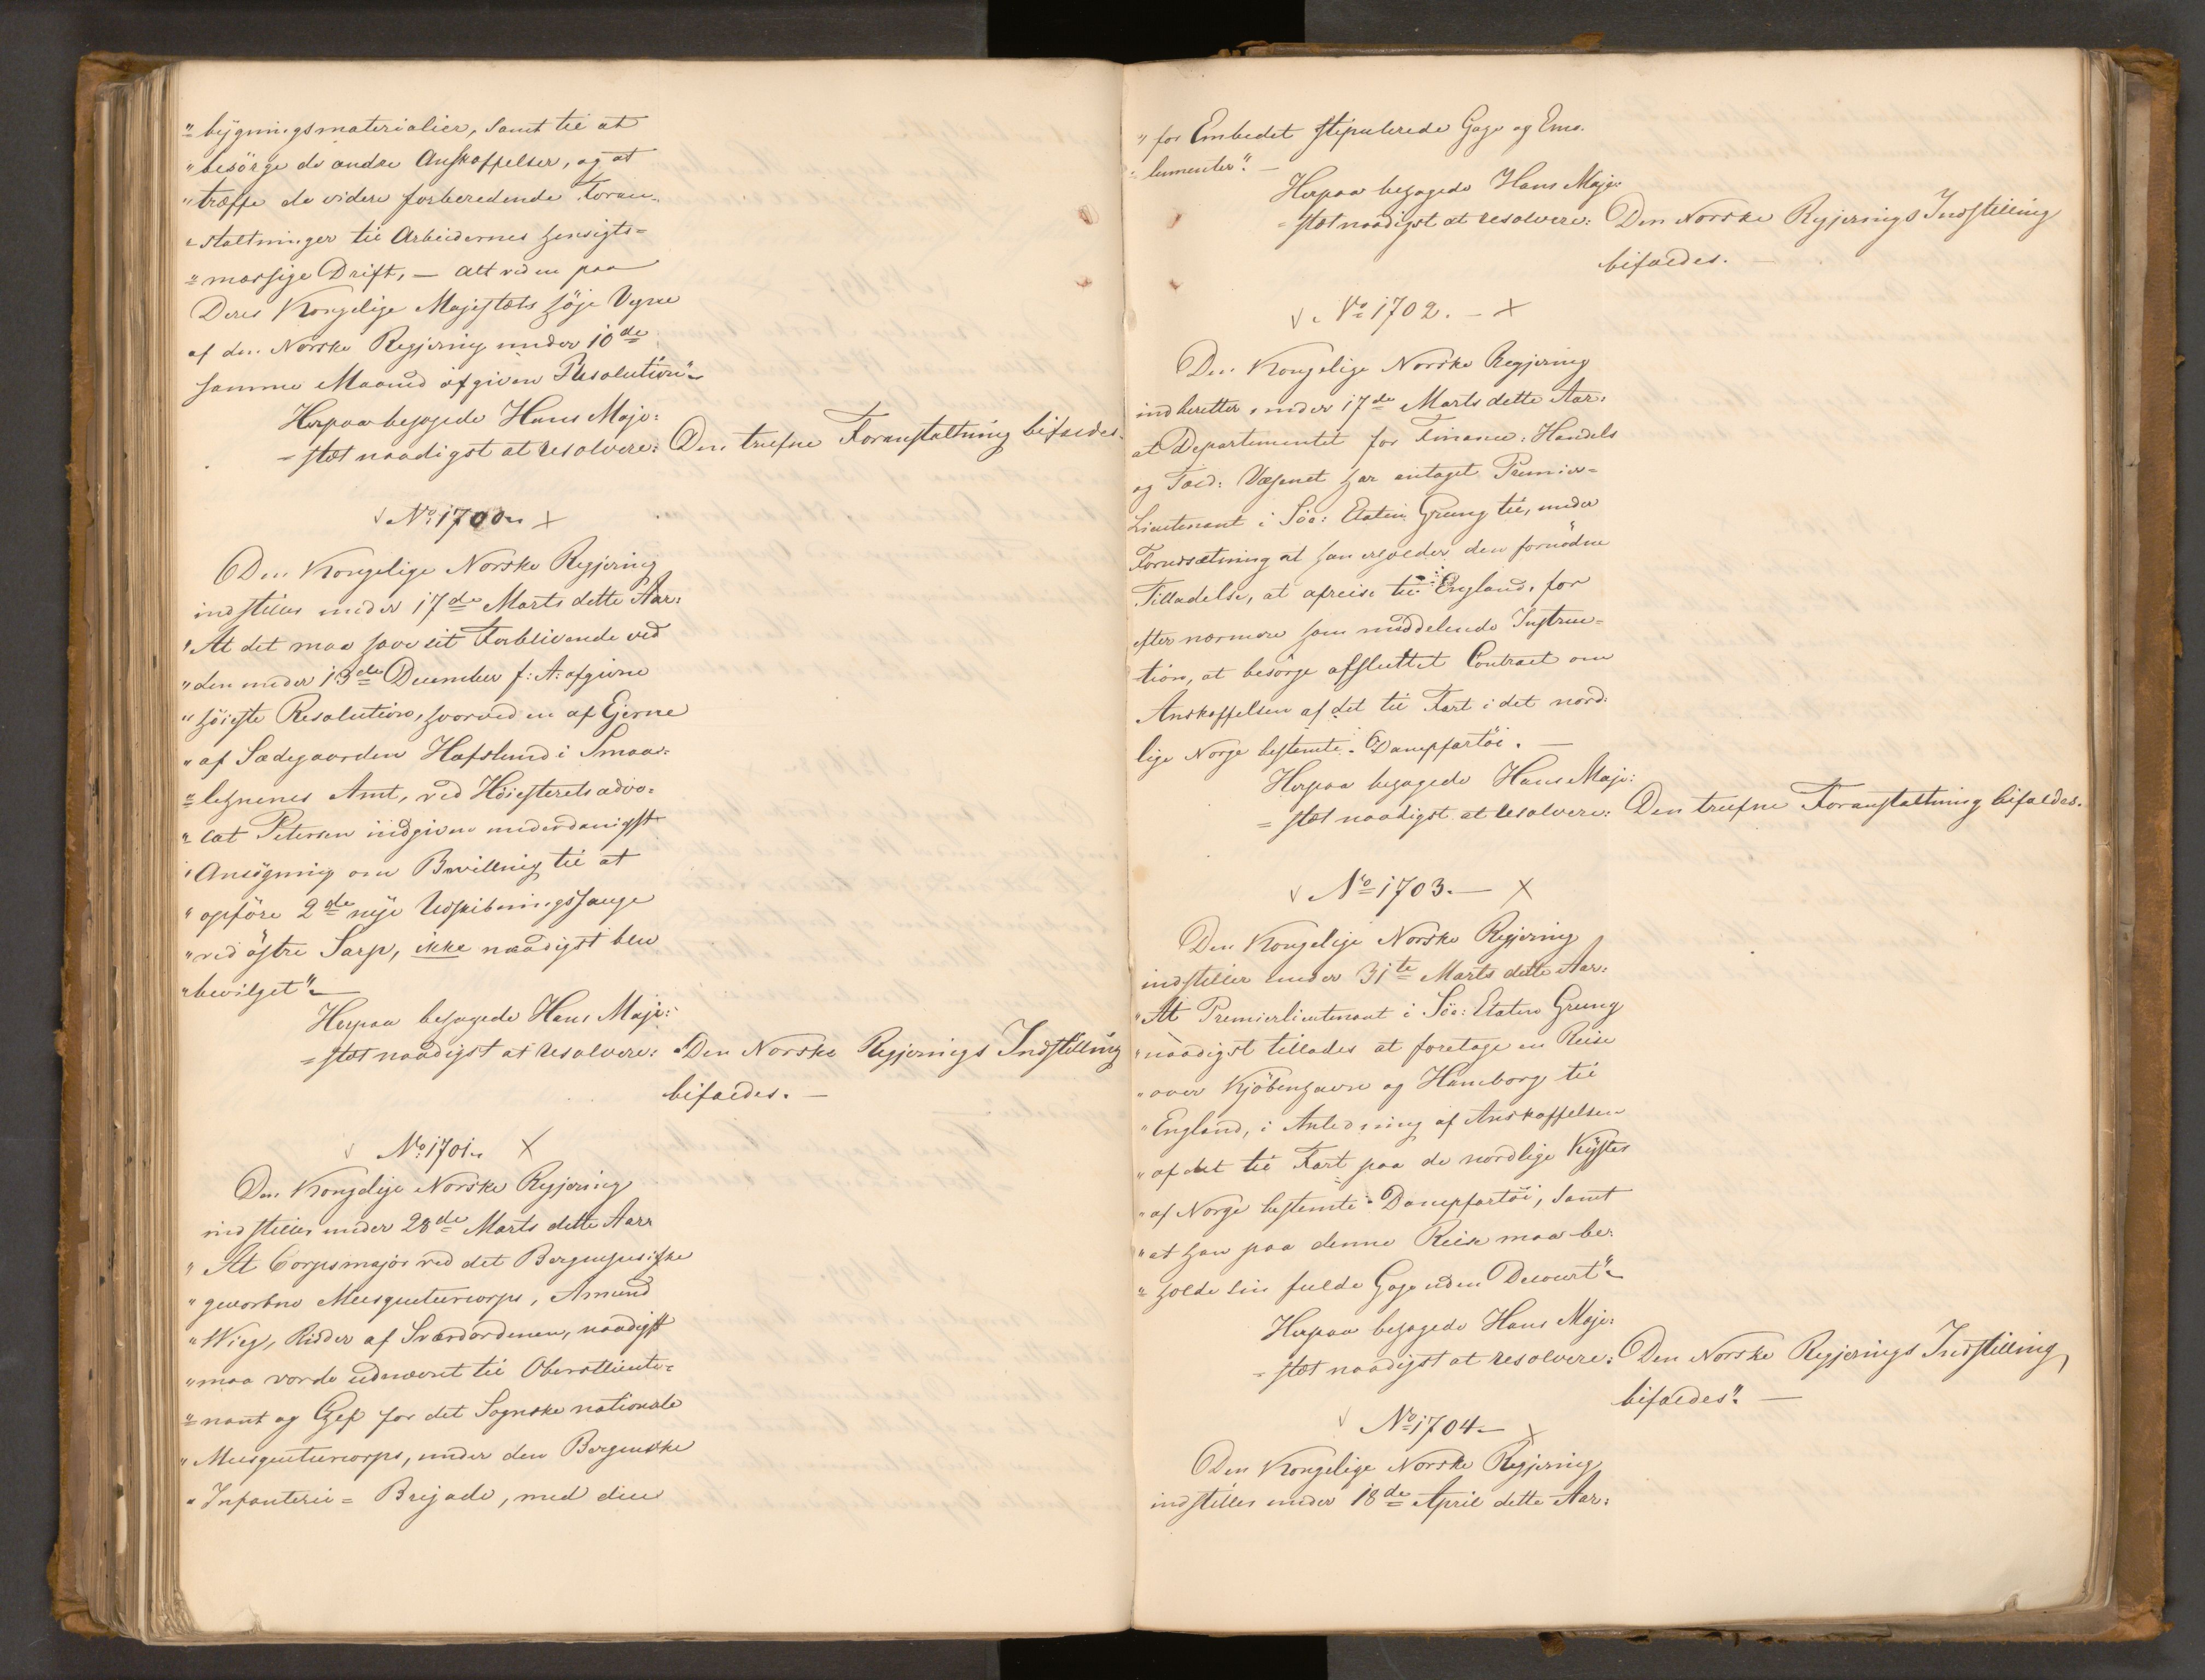 "bygningsmaterialier, samt til at
"besörge de andre Anskaffelser, og at
"træffe de videre forberedende Foran-
"staltninger til Arbeidernes hensigts=
"mæssige Drift, — alt ved en paa
Deres Kongelige Majestæts höje Vegne
af den Norske Regjering under 10de
samme Maaned afgiven Resolution"
Herpaa behagede Hans Maje:
=stæt naadigst at resolvere: Den trufne Foranstaltning bifaldes.
No 1700. X
Den Kongelige Norske Regjering
indstiller under 17de Marts dette Aar:
"At det maa have sit Forblivende ved
"den under 13de December f: A: afgivne
"höieste Resolution, hvorved en af Ejerne
"af Sædegaarden Hafslund i Smaa=
"lehnenes Amt, ved Höiesteretsadvo=
"cat Petersen indgiven underdanigst
"Ansögning om Bevilling til at
"opföre 2de nye Udskibningshauge
"ved östre Sarp, ikke naadigst blev
"bevilget"
Herpaa behagede Hans Maje:
=stæt naadigst at resolvere: "Den Norske Regjerings Indstilling
bifaldes. —
No 1701. X
Den Kongelige Norske Regjering
indstiller under 28de Marts dette Aar
"At Corpsmajor ved det Bergenhusiske
"gevorbne Musqueteercorps, Amund
"Wieg, Ridder af Sværdordenen, naadigst
"maa vorde udnævnt til Oberstlieute=
"nant og Chef for det Sognske nationale
"Musqueteercorps, under den Bergenske
"Infanterie= Brigade, med den
"for Embedet stipulerede Gage og Emo-
"lumenter". —
Herpaa behagede Hans Maje:
=stæt naadigst at resolvere: Den Norske Regjerings Indstilling
bifaldes. —
No 1702. — X
Den Kongelige Norske Regjering
indberetter under 17de Marts dette Aar:
at Departementet for Finance: Handels
og Told: Væsenet har antaget Premier=
Lieutenant i Söe: Etaten Grung til, under
Forudsætning at han erholder den fornödne
Tilladelse, at afreise til England, for
efter nærmere ham meddelende Instruc=
tion, at besörge afsluttet Contract om
Anskaffelsen af det til Fart i det nord:
lige Norge bestemte Dampfartöi. —
Herpaa behagede Hans Maje:
=stæt naadigst at resolvere: Den trufne Foranstaltning bifaldes.
No 1703. — X
Den Kongelige Norske Regjering
indstiller under 31te Marts dette Aar:
"At Premierlieutenant i Söe: Etaten Grung
"naadigst tillades at foretage en Reise
"over Kjöbenhavn og Hamborg til
"England, i Anledning af Anskaffelsen
"af det til Fart paa de nordlige Kyster
"af Norge bestemte Dampfartöi, samt
"at han paa denne Reise maa be:
"holde sin fulde Gage uden Decourt"
Herpaa behagede Hans Maje:
=stæt naadigst at resolvere: Den Norske Regjerings Indstilling
bifaldes". —
No 1704 — X
Den Kongelige Norske Regjering
indstiller under 18de April dette Aar: